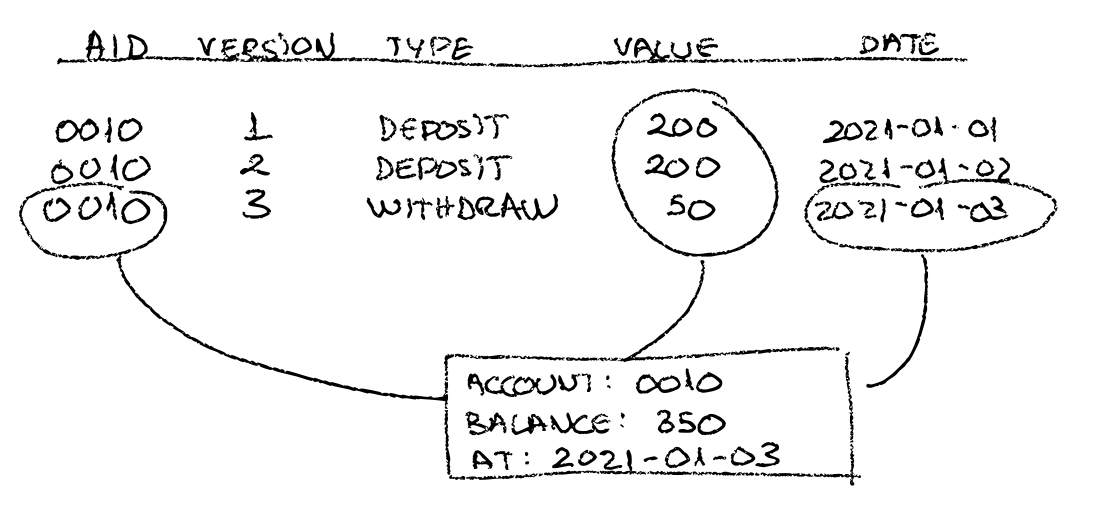 AID VERSION TYPE VALUE DATE
0010 1 DEPOSIT 200 2021-01-01
0010 2 DEPOSIT 200 2021-01-02
0010 3 WITHDRAW 50 2021-01-03
ACCOUNT: 0010
BALANCE: 350
AT: 2021-01-03